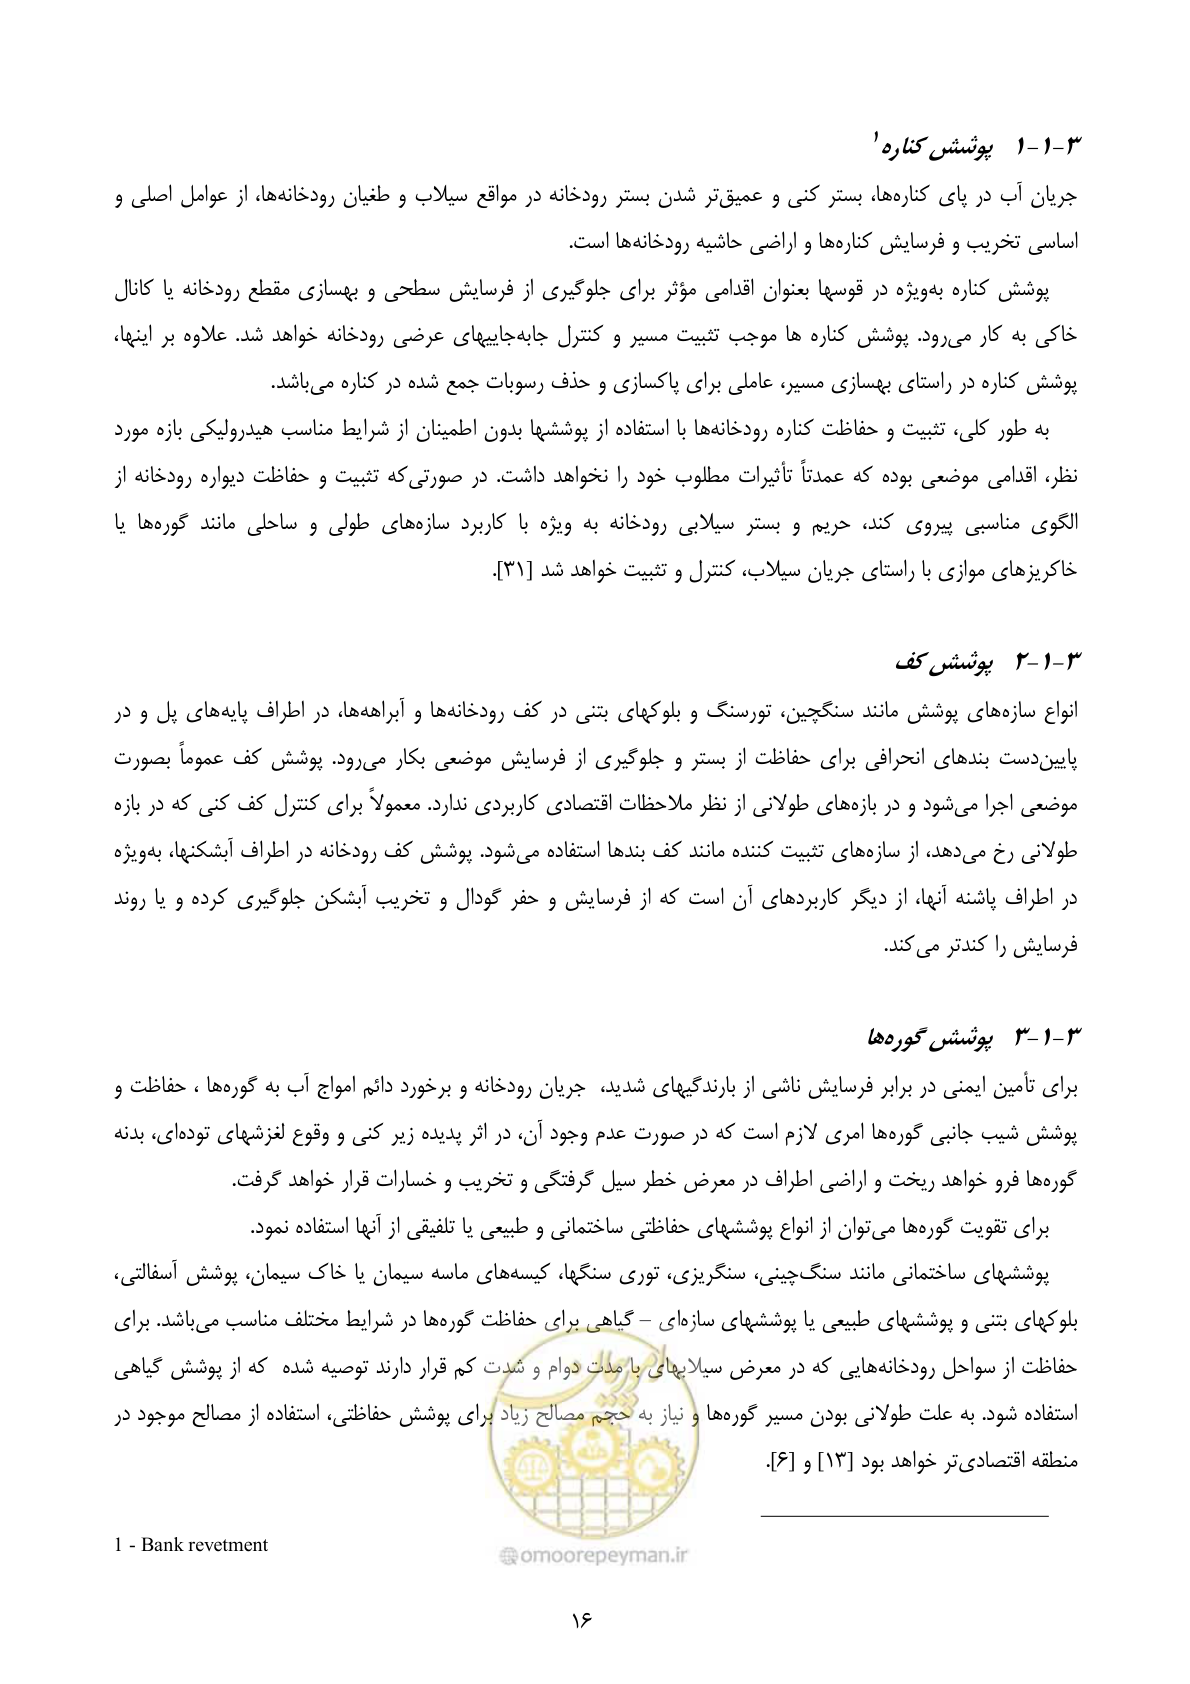 ۳-۱-۱ پوشش کناره۱
جریان آب در پای کناره‌ها، بستر کنی و عمیق‌تر شدن بستر رودخانه در مواقع سیلاب و طغیان رودخانه‌ها، از عوامل اصلی و
اساسی تخریب و فرسایش کناره‌ها و اراضی حاشیه رودخانه‌ها است.
پوشش کناره به‌ویژه در قوسها بعنوان اقدامی مؤثر برای جلوگیری از فرسایش سطحی و بهسازی مقطع رودخانه یا کانال
خاکی به کار می‌رود. پوشش کناره ها موجب تثبیت مسیر و کنترل جابه‌جاییهای عرضی رودخانه خواهد شد. علاوه بر اینها،
پوشش کناره در راستای بهسازی مسیر، عاملی برای پاکسازی و حذف رسوبات جمع شده در کناره می‌باشد.
به طور کلی، تثبیت و حفاظت کناره رودخانه‌ها با استفاده از پوششها بدون اطمینان از شرایط مناسب هیدرولیکی بازه مورد
نظر، اقدامی موضعی بوده که عمدتاً تأثیرات مطلوب خود را نخواهد داشت. در صورتی‌که تثبیت و حفاظت دیواره رودخانه از
الگوی مناسبی پیروی کند، حریم و بستر سیلابی رودخانه به ویژه با کاربرد سازه‌های طولی و ساحلی مانند گوره‌ها یا
خاکریزهای موازی با راستای جریان سیلاب، کنترل و تثبیت خواهد شد [۳۱].
۳-۱-۲ پوشش کف
انواع سازه‌های پوشش مانند سنگچین، تورسنگ و بلوکهای بتنی در کف رودخانه‌ها و آبراهه‌ها، در اطراف پایه‌های پل و در
پایین‌دست بندهای انحرافی برای حفاظت از بستر و جلوگیری از فرسایش موضعی بکار می‌رود. پوشش کف عموماً بصورت
موضعی اجرا می‌شود و در بازه‌های طولانی از نظر ملاحظات اقتصادی کاربردی ندارد. معمولاً برای کنترل کف کنی که در بازه
طولانی رخ می‌دهد، از سازه‌های تثبیت کننده مانند کف بندها استفاده می‌شود. پوشش کف رودخانه در اطراف آبشکنها، به‌ویژه
در اطراف پاشنه آنها، از دیگر کاربردهای آن است که از فرسایش و حفر گودال و تخریب آبشکن جلوگیری کرده و یا روند
فرسایش را کندتر می‌کند.
۳-۱-۳ پوشش گوره‌ها
برای تأمین ایمنی در برابر فرسایش ناشی از بارندگیهای شدید، جریان رودخانه و برخورد دائم امواج آب به گوره‌ها ، حفاظت و
پوشش شیب جانبی گوره‌ها امری لازم است که در صورت عدم وجود آن، در اثر پدیده زیر کنی و وقوع لغزشهای توده‌ای، بدنه
گوره‌ها فرو خواهد ریخت و اراضی اطراف در معرض خطر سیل گرفتگی و تخریب و خسارات قرار خواهد گرفت.
برای تقویت گوره‌ها می‌توان از انواع پوششهای حفاظتی ساختمانی و طبیعی یا تلفیقی از آنها استفاده نمود.
پوششهای ساختمانی مانند سنگ‌چینی، سنگریزی، توری سنگها، کیسه‌های ماسه سیمان یا خاک سیمان، پوشش آسفالتی،
بلوکهای بتنی و پوششهای طبیعی یا پوششهای سازه‌ای – گیاهی برای حفاظت گوره‌ها در شرایط مختلف مناسب می‌باشد. برای
حفاظت از سواحل رودخانه‌هایی که در معرض سیلابهای با مدت دوام و شدت کم قرار دارند توصیه شده که از پوشش گیاهی
استفاده شود. به علت طولانی بودن مسیر گوره‌ها و نیاز به حجم مصالح زیاد برای پوشش حفاظتی، استفاده از مصالح موجود در
منطقه اقتصادی‌تر خواهد بود [۱۳] و [۶].
1 - Bank revetment
امور پیمان
@omoorepeyman.ir
۱۶